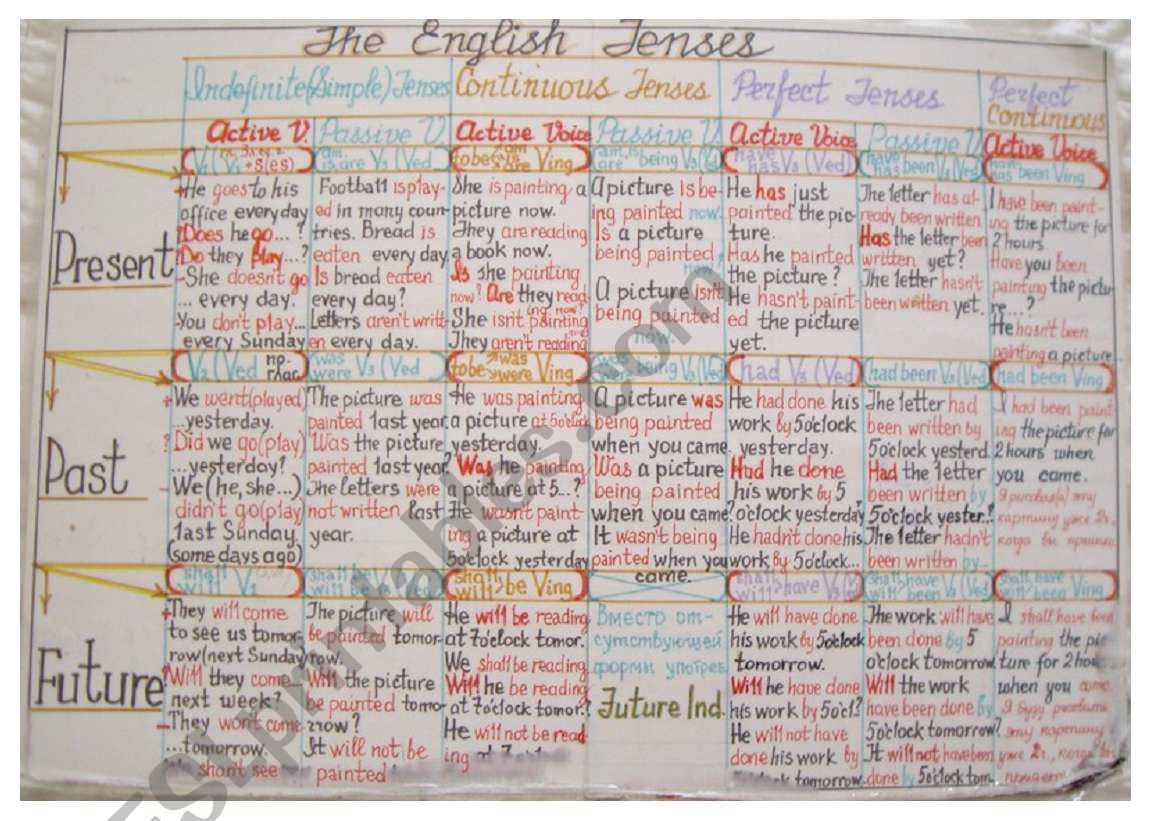 The English Tenses
Indefinite (Simple) Tenses
Continuous Tenses
Perfect Tenses
Perfect
Continuous
Active V.
Passive V
Active Voice
Passive V
Active Voice
Passive V
Active Voice
Present
+s(es)
V3 (Ved
to be am is are Ving
being V3
have has V3 (Ved)
have has been V3 (Ved
have has been Ving
+He goes to his
office everyday
?Does he go...?
?Do they play...?
-She doesn't go
... every day.
You don't play...
every Sunday
Football is play-
ed in many coun-
tries. Bread is
eaten every day
Is bread eaten
every day?
Letters aren't writt-
en every day.
She is painting a
picture now.
They are reading
a book now.
Is she painting
now? Are they read
ing now?
She isn't painting now
They aren't reading
A picture is be-
ing painted now.
Is a picture
being painted
now
A picture isn't
being painted
now.
He has just
painted the pic-
ture.
Has he painted
the picture?
He hasn't paint-
ed the picture
yet.
The letter has al-
ready been written
Has the letter been
written yet?
The letter hasn't
been written yet.
I have been paint-
ing the picture for
2 hours.
Have you been
painting the pictu-
re...?
He hasn't been
painting a picture...
Past
V2 (Ved
was were V3 (Ved
to be was were Ving
was were being V3 (Ved
had V3 (Ved
had been V3 (Ved
had been Ving
+We went(played)
...yesterday.
?Did we go(play)
...yesterday?
-We(he, she...)
didn't go(play)
last Sunday.
(some days ago)
The picture was
painted last year.
Was the picture
painted last year?
The letters were
not written last
year.
He was painting
a picture at 5o'clock
yesterday.
Was he painting
a picture at 5...?
He wasn't paint-
ing a picture at
5o'clock yesterday
A picture was
being painted
when you came.
Was a picture
being painted
when you came?
It wasn't being
painted when you
came.
He had done his
work by 5o'clock
yesterday.
Had he done
his work by 5
o'clock yesterday
He hadn't done his
work by 5o'clock...
The letter had
been written by
5o'clock yesterd.
Had the letter
been written by
5o'clock yester.?
The letter hadn't
been written by...
I had been paint-
ing the picture for
2 hours when
you came.
Future
shall will V1
shall will be Ving
shall will have V3
shall have will been V3 (Ved
shall have will been Ving
+They will come
to see us tomor-
row(next Sunday)
?Will they come...
next week?
-They won't come
...tomorrow.
shan't see
The picture will
be painted tomor-
row.
Will the picture
be painted tomo
rrow?
It will not be
painted
He will be reading
at 7o'clock tomor.
We shall be reading
Will he be reading
at 7o'clock tomor.?
He will not be read
ing
Вместо от-
сутствующей
формы употреб.
Future Ind.
He will have done
his work by 5o'clock
tomorrow.
Will he have done
his work by 5o'cl?
He will not have
done his work by
tomorrow.
The work will have
been done by 5
o'clock tomorrow
Will the work
have been done by
5o'clock tomorrow?
It will not have been
done by 5o'clock tom..
I shall have been
painting the pic
ture for 2 hou
when you come.
ESLprintables.com